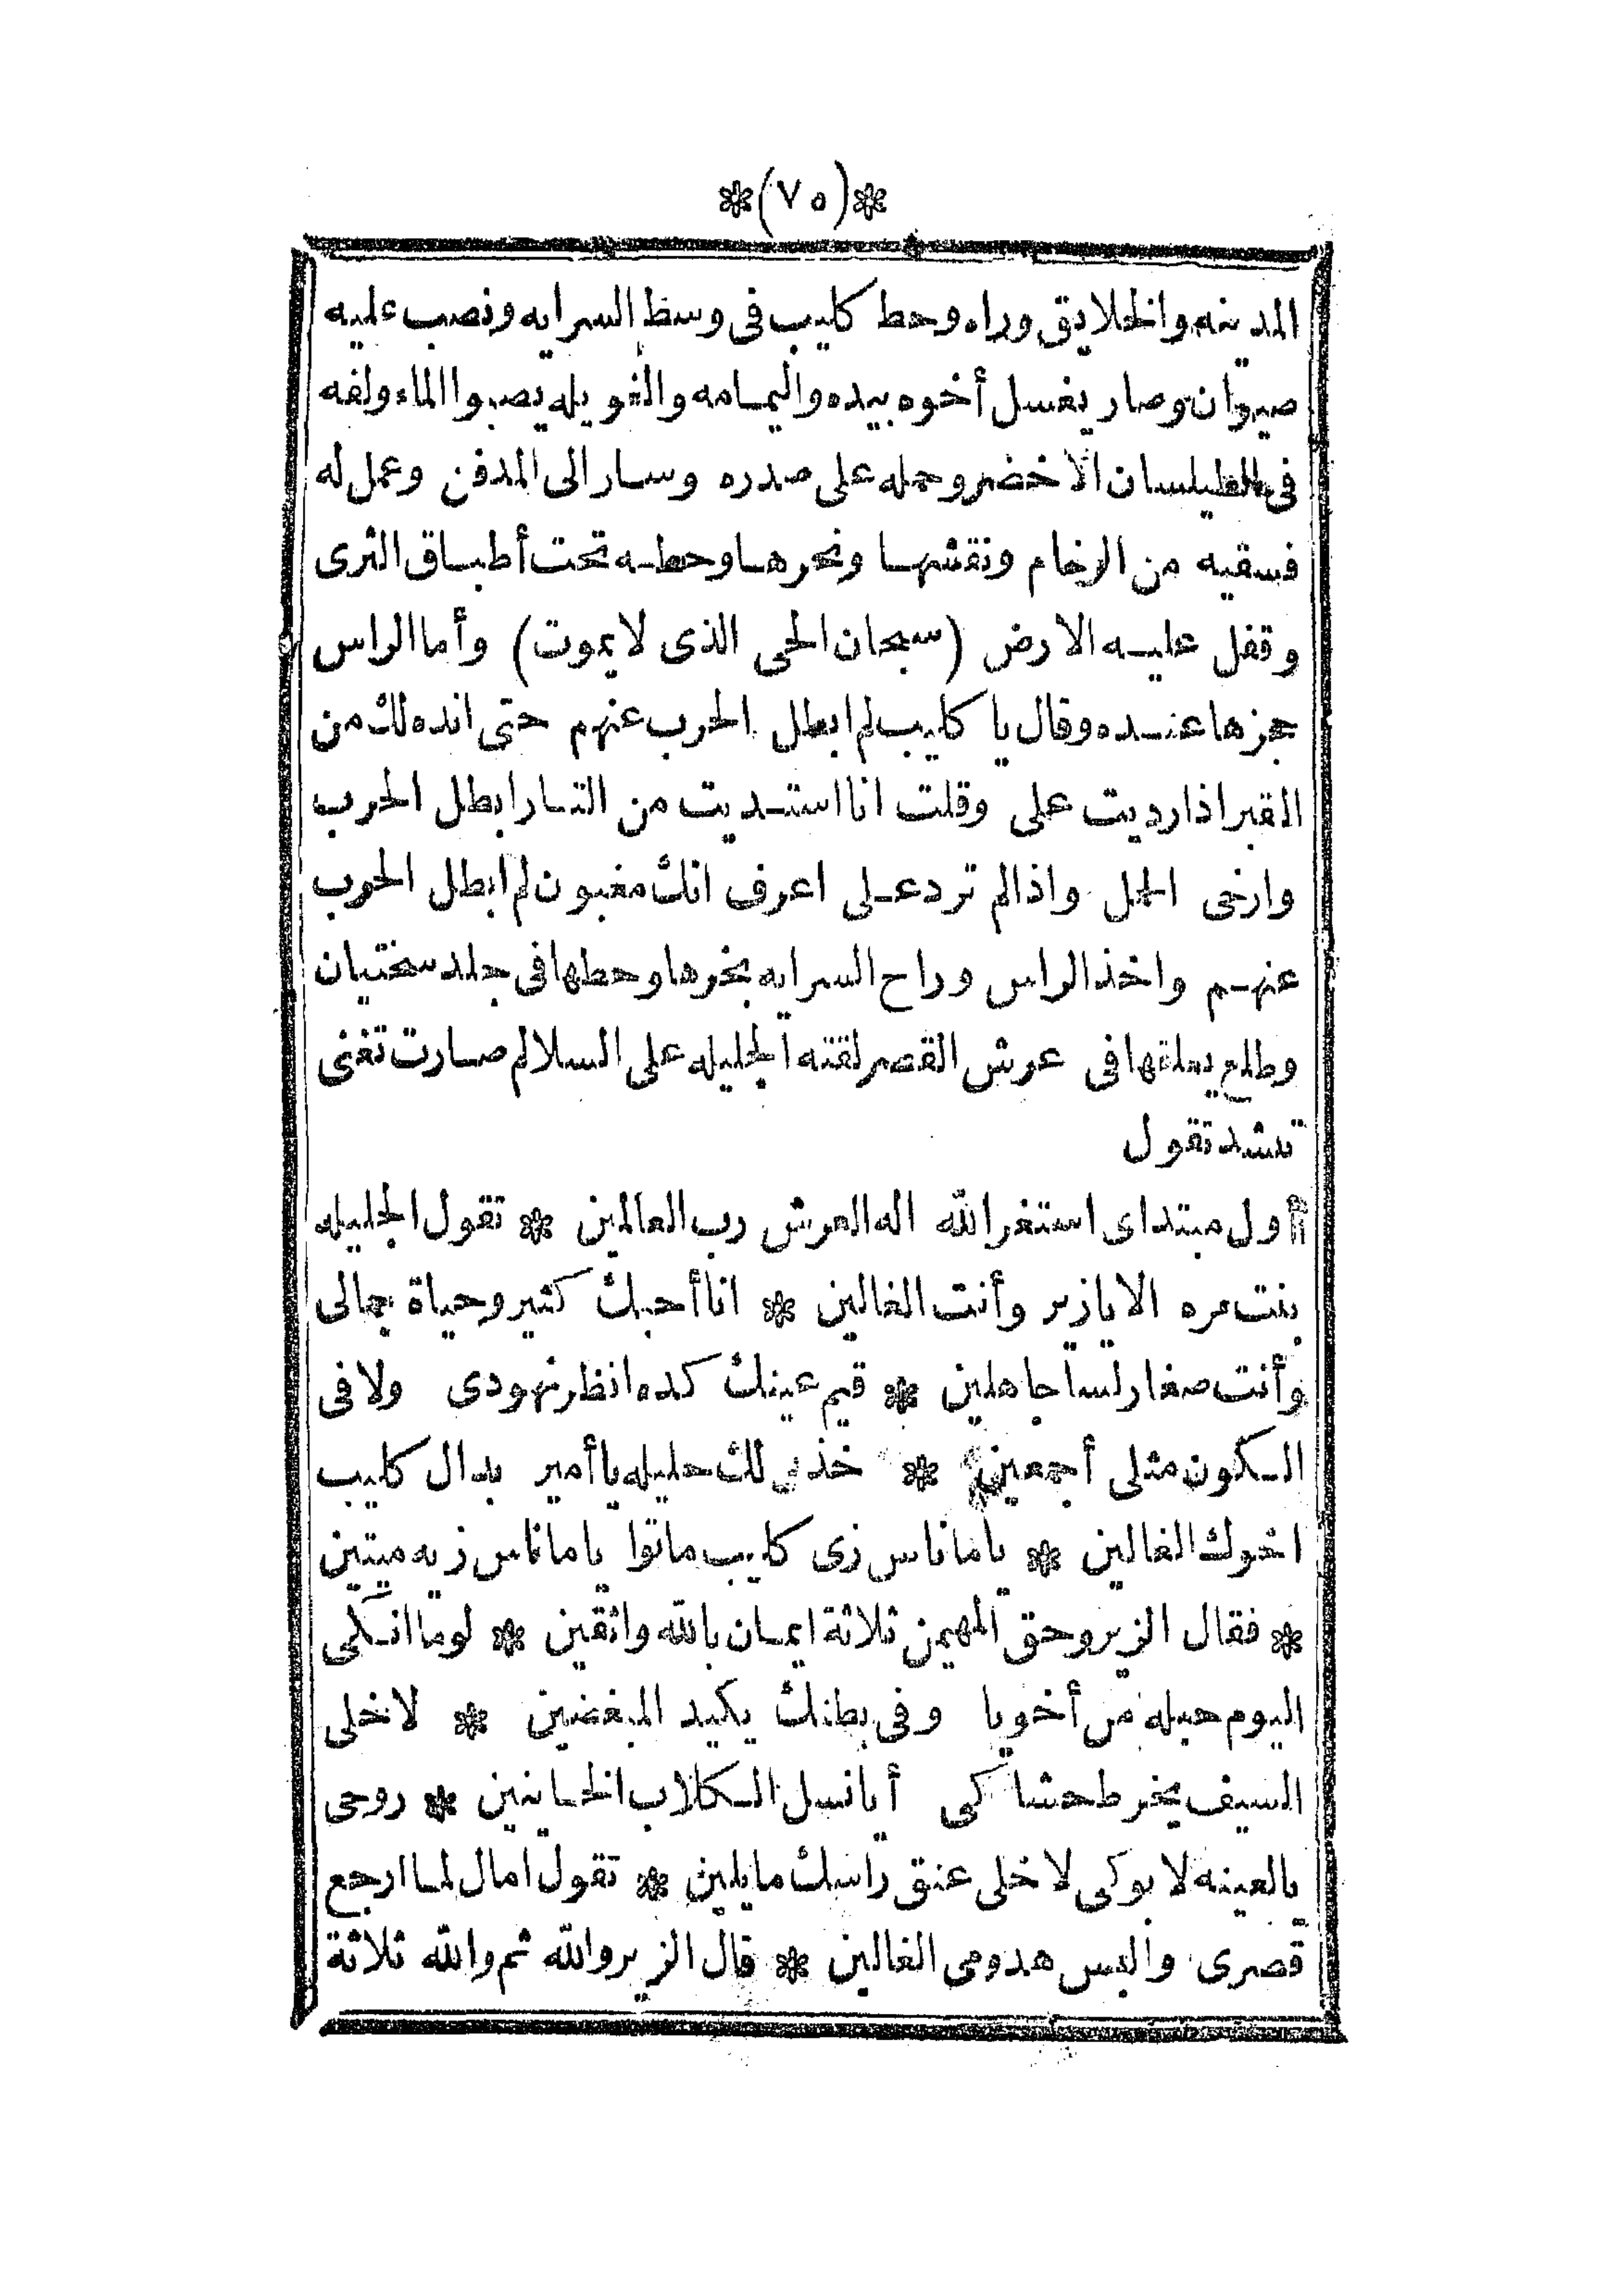 *(٧٥)*
المدينه والخلايق وراه وحط كليب فى وسط السرايه ونصب عليه
صيوان وصار يغسل أخوه بيده واليمامه والغويله يصبوا الماء ولفه
فى الطيلسان الاخضر وحمله على صدره وسار الى المدفن وعمل له
فسقيه من الرخام ونقشها ونحرها وحطه تحت أطباق الثرى
وقفل عليه الارض (سبحان الحى الذى لا يموت) وأما الراس
حجزها عنده وقال يا كليب لم ابطل الحرب عنهم حتى انده لك من
القبر اذا رديت على وقلت انا استديت من التار ابطل الحرب
وارخى الحمل واذا لم ترد على اعرف انك مغبون لم ابطل الحرب
عنهم واخذ الراس وراح السرايه بخرها وحطها فى جلد سختيان
وطلع يعلقها فى عرش القصر لقته الجليله على السلالم صارت تغنى
تنشد تقول
أول مبتداى استغر الله اله العرش رب العالمين * تقول الجليله
بنت مره الا يازير وأنت الغالين * انا أحبك كثير وحياة جمالى
وأنت صغار لسا جاهلين * قيم عينك كده انظر نهودى ولا فى
الكون مثلى أجمعين * خذ لك حليله يا أمير بدال كليب
اخوك الغالين * ياما ناس زى كليب ماتوا ياما ناس زيه ميتين
* فقال الزير وحق المهيمن ثلاثة ايمان بالله واثقين * لوما انكى
اليوم حبله من أخويا وفى بطنك يكيد المبغضين * لا خلى
السيف يخرط حشاكى أيا نسل الكلاب الخاينين * روحى
بالعينه لا بوكى لا خلى عنق راسك مايلين * تقول امال لما ارجع
قصرى والبس هدومى الغالين * قال الزير والله ثم والله ثلاثة